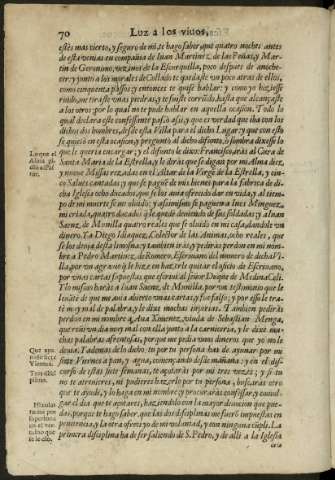 70 Luz à los viuos,
estès mas cierto, y seguro de mi, te hago saber, que quatro noches antes
de esta venias en compañia de Iuan Martinez de las Peñas, y Mar-
tin de Geronimo, vezinos de la Escurquilla, poco despues de anoche-
cer: y junto a los morales de Collado te quedaste vn poco atras de ellos,
como cinquenta passos, y entonces te quise hablar: y como yo hiziesse
ruido, me tiraste vnas pedradas, y te fuiste corriẽdo, hasta que alcançaste
a los otros: por lo qual no te pude hablar en aquella ocasion. Todo lo
qual declara este confessante passò assi, y que es verdad que iba con los
dichos dos hombres, desde esta Villa para el dicho Lugar: y que con esto
se quietò en esta ocasion, y preguntò al dicho difunto, ò sombra dixesse lo
que le queria encargar: y el difunto le dixo: Francisco, iràs al Cura de
Santa Maria de la Estrella, y le diràs que se digan por mi Alma diez,
y nueue Missas rezadas en el Altar de la Virgẽ de la Estrella, y cin-
co Salues cantadas, y que se pague de mis bienes para la fabrica de di-
cha Iglesia ocho ducados, que se los auia ofrecido dar en vida, y al tiem-
po de mi muerte se me oluidò: y assimismo se paguen a Ines Minguez,
mi criada, quatro ducados q̃ le quedè deuiendo de sus soldadas, y a Iuan
Saenz, de Munilla quatro reales que se oluidò en mi casa, dandole vna
dinero. La Diego Idiaquez, Texedor de la
se los dexò de esta limosna, y tambien iràs, y pediràs perdon en mi nom-
bre a Pedro Martinez, de Romero, Escriuano del numero de dicha Vi-
lla, por vn agrauio q̃ le hize en hazerle quitar el oficio de Escriuano,
por vnas cartas supuestas, que escriuì al señor Duque de Medina-Celi.
Y lo mismo haràs a Iuan Saenz, de Munilla, por vn testimonio que le
leuãtè de que me auia abierto vnas cartas, y fue falso; y por esso le tra-
tè muy mal de palabra, y le dixe muchas injurias. Y tambien pediràs
perdon en mi nombre a Ana Ximenez, viuda de Sebastian Menga,
que reñì vn dia muy mal con ella junto a la carniceria, y le dixe mu-
chas palabras afrentosas, porque me pedia vnos dineros que yo no le
deuia. Y ademas de lo dicho, tu por tu persona has de ayunar por mi
siete Viernes a pan, y agua, començando desde mañana: y en el dis-
curso de estas siete semanas, te açotaràs por mi tres vezes; y si tu
no te atreuieres, ni pudieres hazerlo por tu persona, buscaràs otro
que te ayude, y lo haga en mi nombre; y procuraràs confessar, y comul-
gar el dia que te açotares, haziendolo con la mayor deuocion que pue-
das; porque te hago saber, que las dos disciplinas me fuerõ impuestas en
penitencia, y la otra ofrecì yo de mi voluntad, y con ninguna cumplì. La
primera disciplina ha de ser saliendo de S. Pedro, y de alli a la Iglesia
Lo que el
Alma pi-
Que ayu-
nasse siete
Viernes.
Tres disci-
plinas.